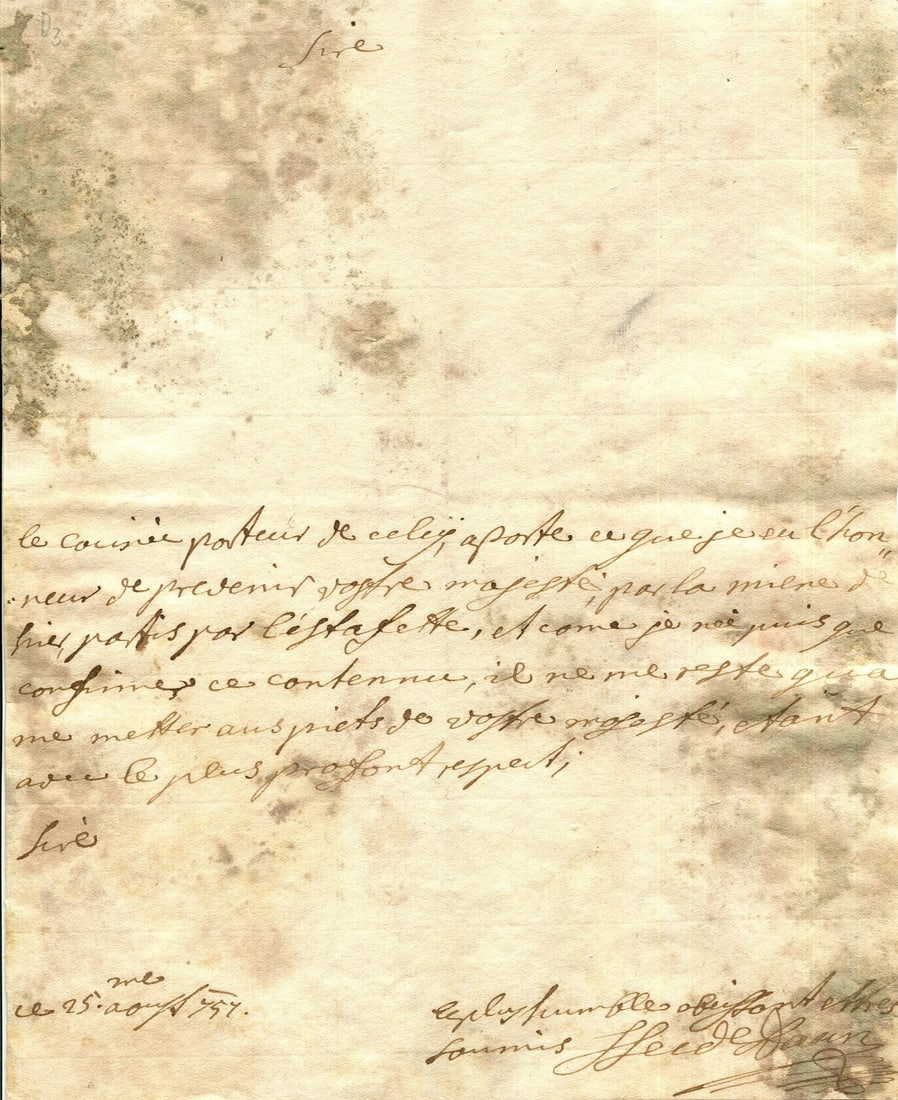 D3
Sire
le couriè porteur de celcy, aporte ce que je eu l'hon„
„neur de prevenir vostre majesté, par la miene de
hier, partis par l'éstafette, et come je né puis que
confirmer ce contennu, il ne me reste qua
me metter aus piets de vostre majesté, etant
avec le plus profont respect;
Siré
me
ce 25. aoust 757.
le plus humble obeissant et tres
soumis